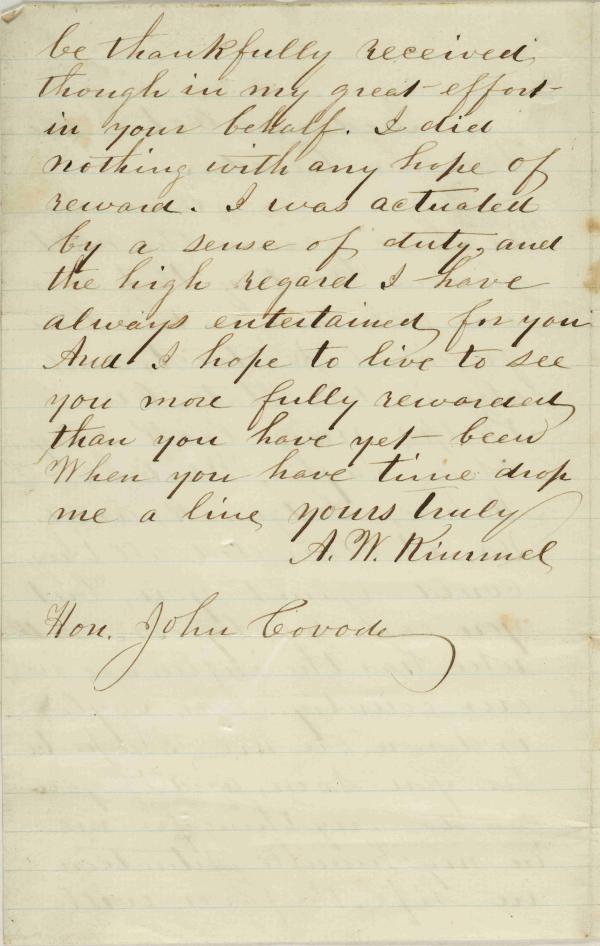 be thankfully received
though in my great effort
in your behalf. I did
nothing with any hope of
reward. I was actuated
by a sense of duty, and
the high regard I have
always entertained for you
And I hope to live to see
you more fully rewarded
than you have yet been
When you have time drop
me a line yours truly
A. W. Kimmel
Hon. John Covode